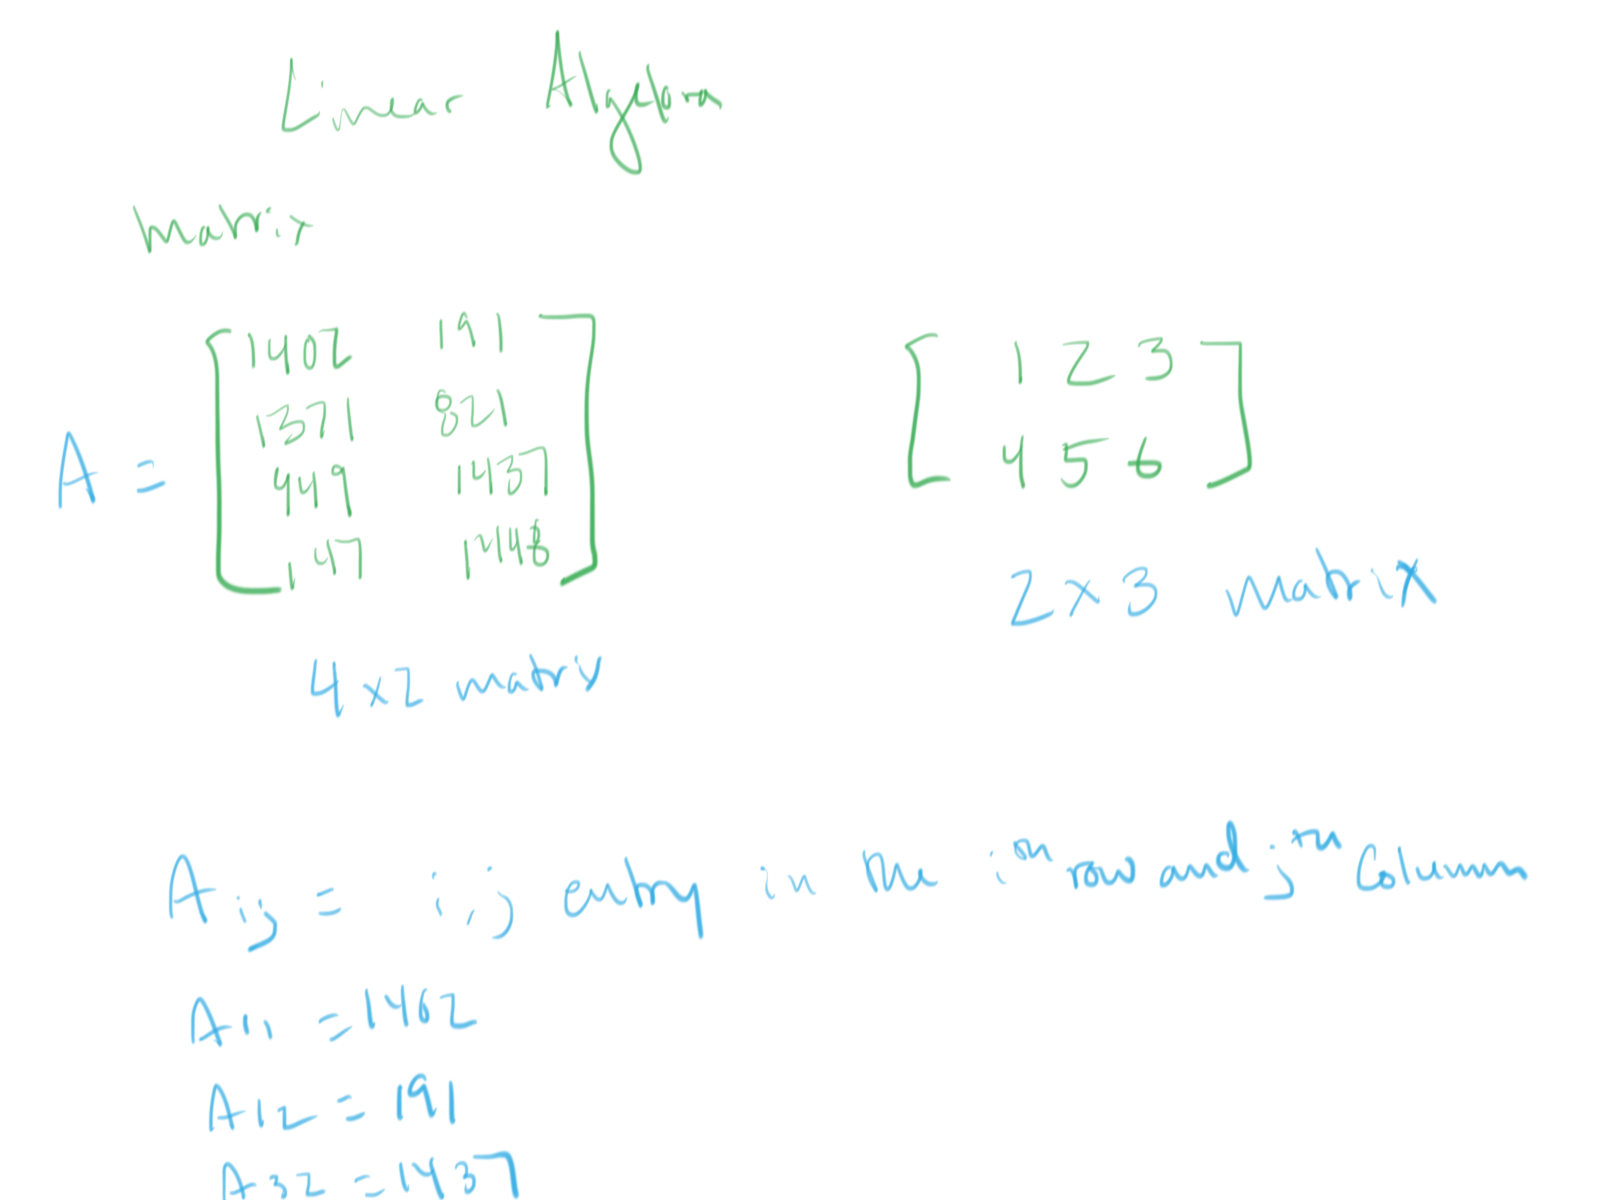 Linear Algebra
matrix
A = [ 1402 191
1371 821
949 1437
147 1448 ]
[ 1 2 3
4 5 6 ]
4 x 2 matrix
2 x 3 matrix
A ij = i,j entry in the i th row and j th Column
A11 = 1402
A12 = 191
A32 = 1437